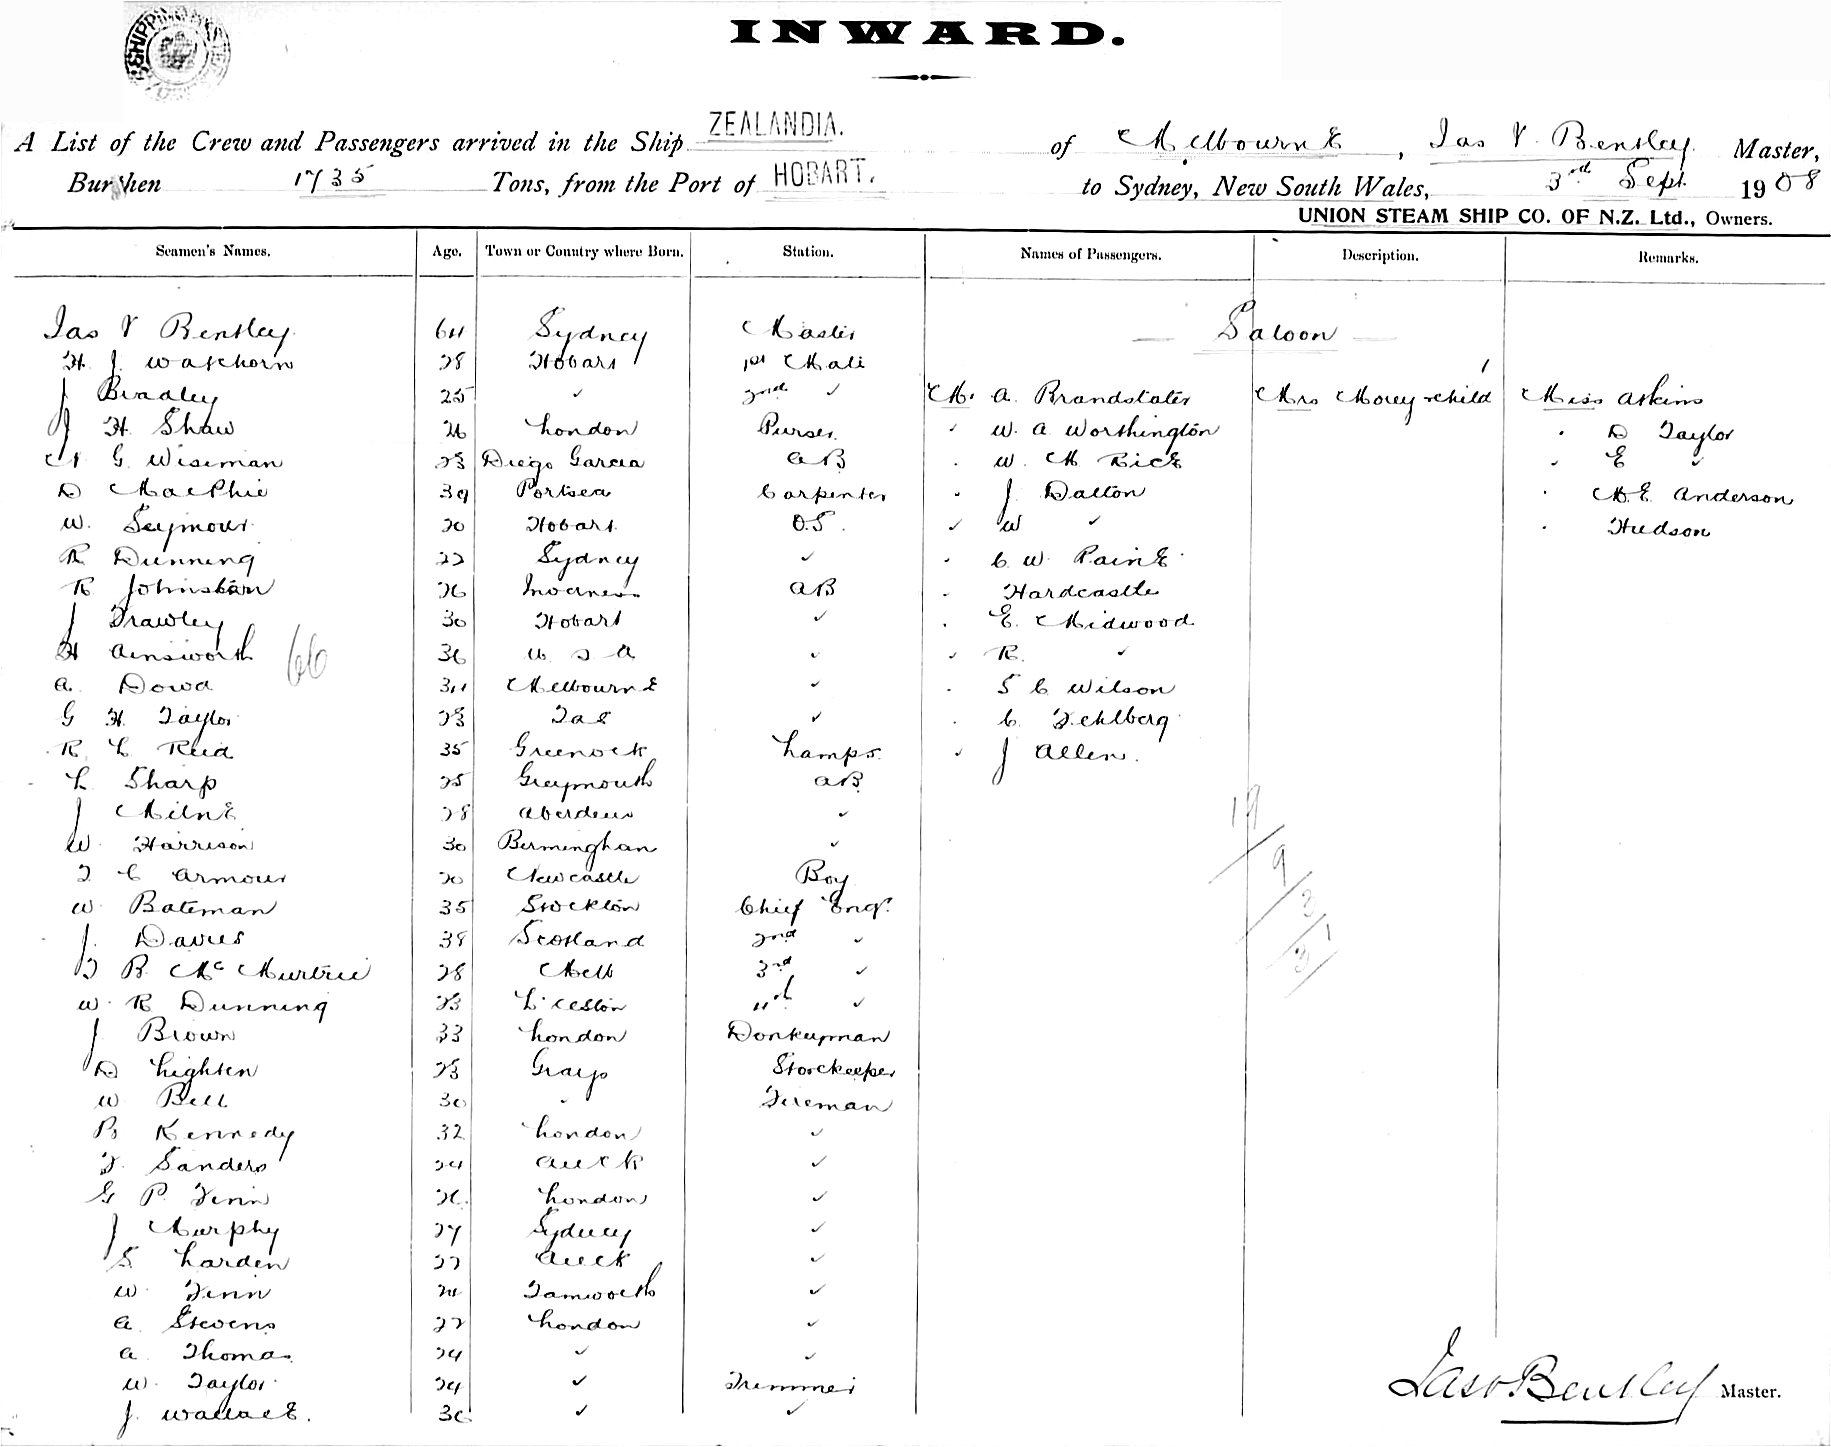 INWARD.
A List of the Crew and Passengers arrived in the Ship ZEALANDIA. of Melbourne, Jas V. Bentley Master,
Burthen 1735 Tons, from the Port of HOBART. to Sydney, New South Wales, 3rd Sept. 1908
UNION STEAM SHIP CO. OF N.Z. Ltd., Owners.
Seamen's Names. Age. Town or Country where Born. Station. Names of Passengers. Description. Remarks.
Jas V Bentley 64 Sydney Master Saloon
H. J. Watchorn 28 Hobart 1st Mate
J Bradley 25 " 2nd " Mr A. Brandstater Mrs Morey & child Miss Atkins
J H. Shaw 26 London Purser " W. A Worthington " D Taylor
N G. Wiseman 23 Diego Garcia AB " W. M Rice " E "
D MacPhie 39 Portsea Carpenter " J Dalton " M.E. Anderson
W. Seymour 20 Hobart O.S. " W " " Hudson
R Dunning 22 Sydney " " C. W. Paine
R Johnston 26 Inverness AB " Hardcastle
J Frawley 30 Hobart " " E. Midwood
H Ainsworth 66 36 U S A " " R. "
A. Dowd 34 Melbourne " " S C Wilson
G H. Taylor 23 Tas " " C. Fehlberg
R. L Reid 35 Greenock Lamps. " J Allen.
L Sharp 25 Greymouth AB
J Milne 28 Aberdeen "
W. Harrison 30 Birminghan " 19
T C Armour 20 Newcastle Boy 9
W Bateman 35 Stockton Chief Engr. 3
J. Davies 38 Scotland 2nd " 3
T B. McMurtrie 28 Melb 3rd "
W. R Dunning 23 L'ceston 4th "
J Brown 33 London Donkeyman
D Lighten 23 Grays Storekeeper
W Bell 30 " Fireman
B Kennedy 32 London "
F. Sanders 24 Auck "
G P. Finn 26 London "
J Murphy 27 Sydney "
S. Larden 22 Auck "
W. Finn 24 Tamworth "
A. Stevens 22 London "
A. Thomas 24 " "
W. Taylor 24 " Trimmer
J. Wallace. 36 " "
Jas V Bentley Master.